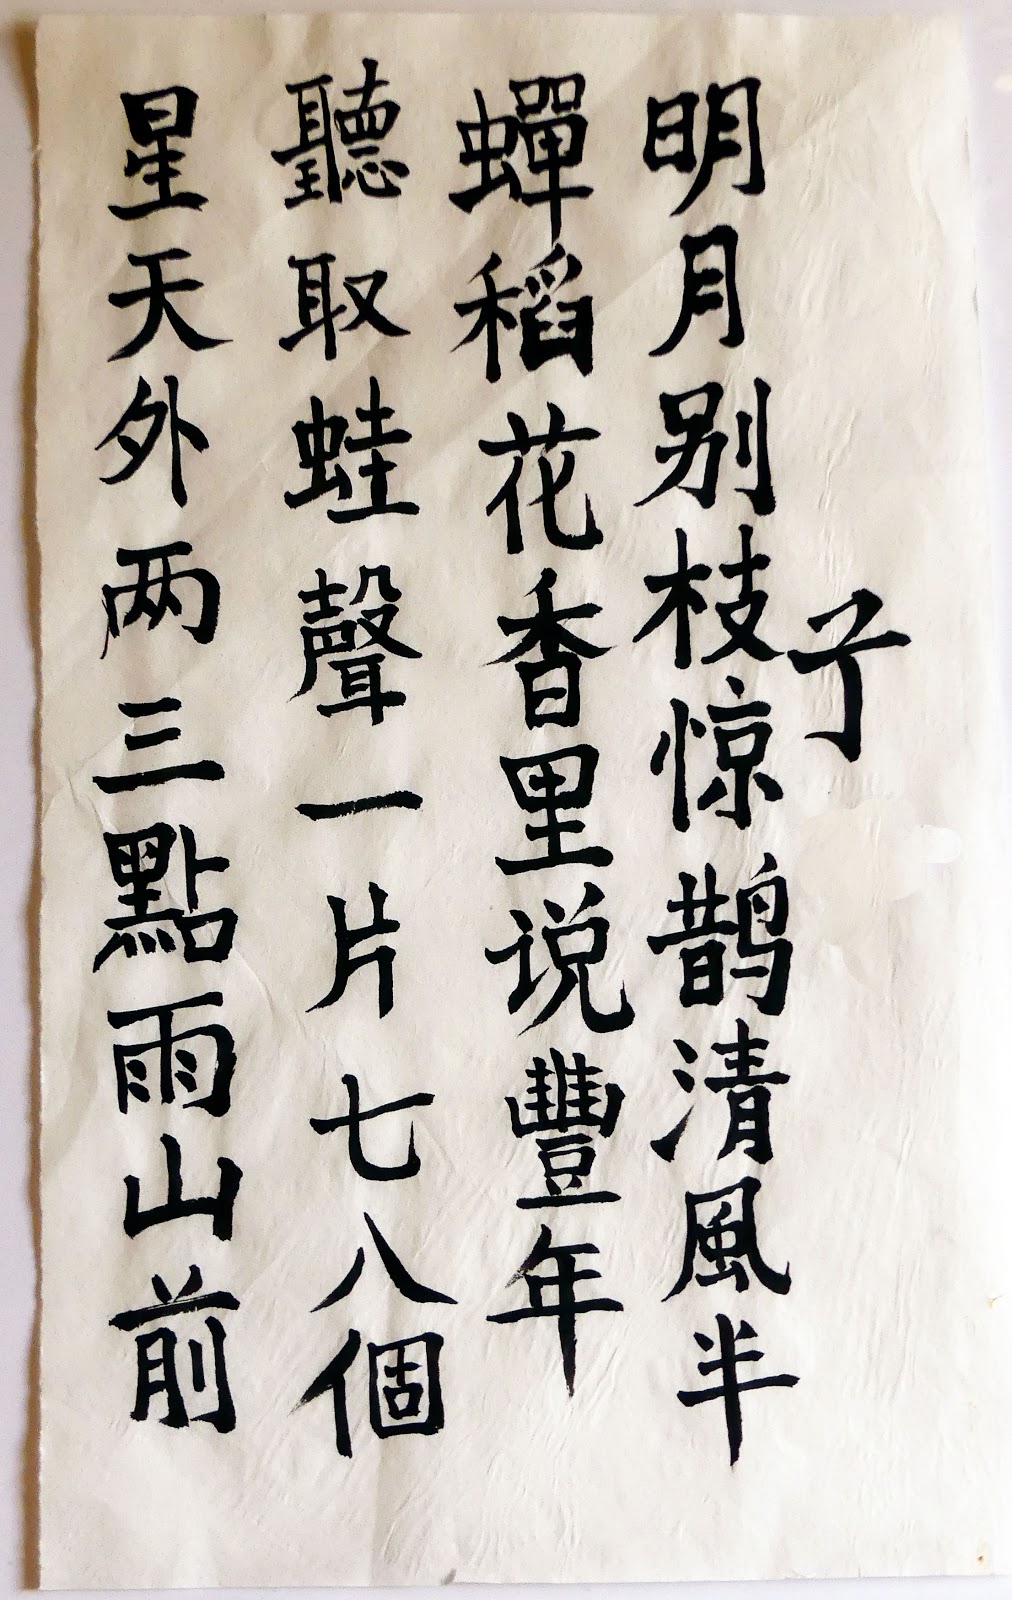 子
明月别枝惊鹊清風半
蟬稻花香里说豐年
聽取蛙聲一片七八個
星天外两三點雨山前